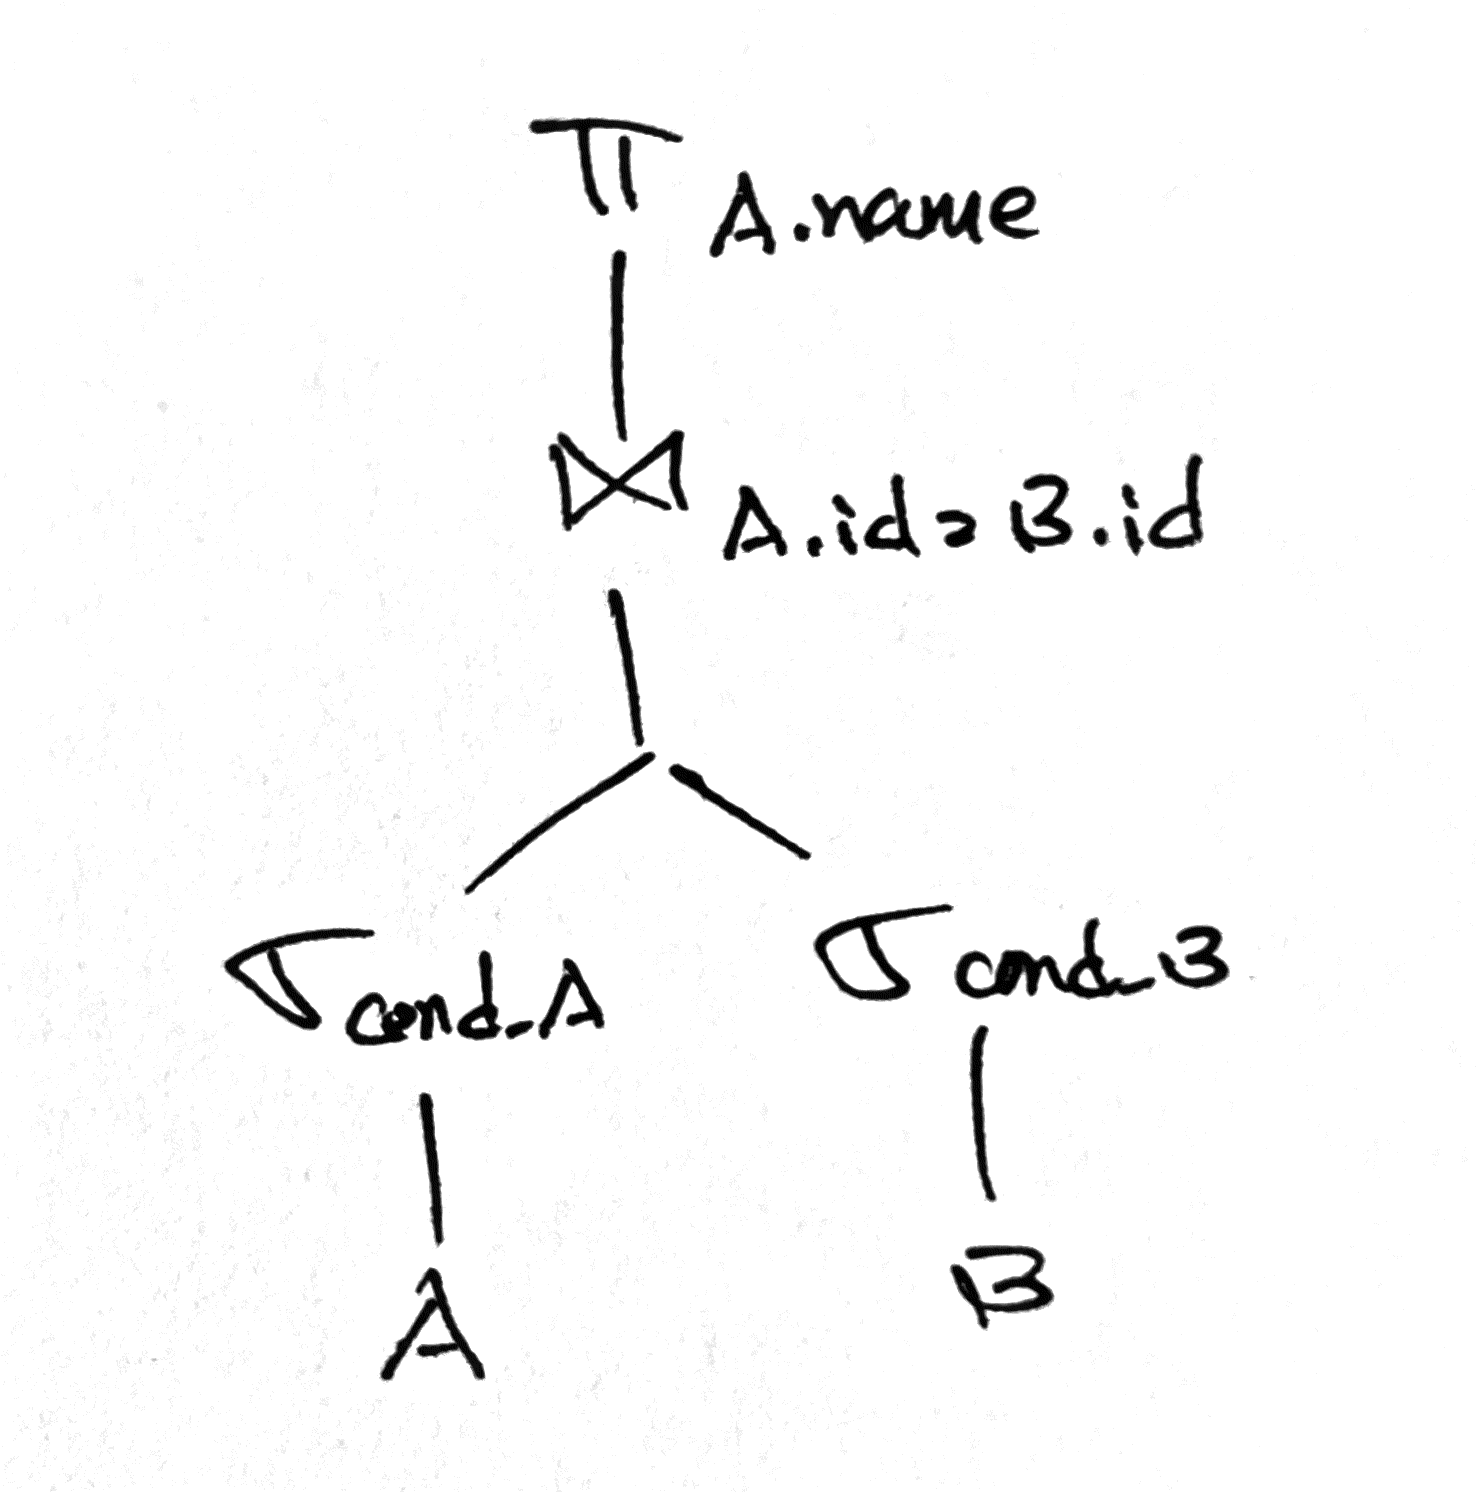 π A.name
⋈ A.id = B.id
σ cond_A σ cond_B
A B